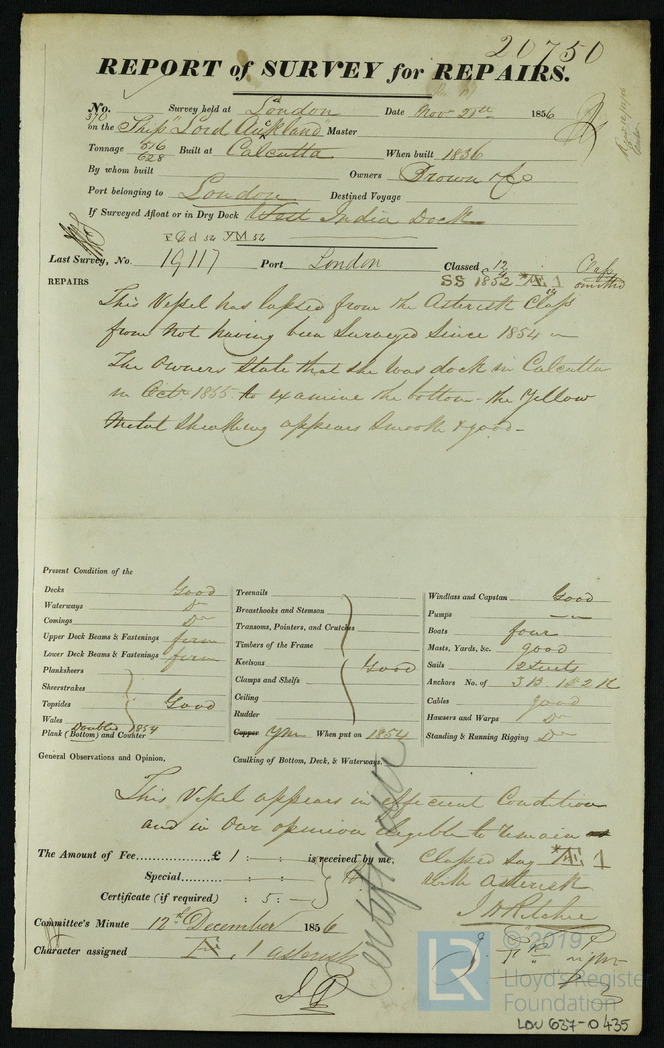 20750
REPORT of SURVEY for REPAIRS.
No. 370 Survey held at London Date Nov 28th 1856
on the Ship "Lord Auckland" Master
Tonnage 516 628 Built at Calcutta When built 1836
By whom built Owners Brown & Co
Port belonging to London Destined Voyage
If Surveyed Afloat or in Dry Dock West India Dock
F&d 54 YM 54
Last Survey, No. 19117 Port London Classed 12
SS 1852 *Æ 1 omitted
REPAIRS
This Vessel has lapsed from the Asterisk Class
from not having been Surveyed Since 1854
The Owners State that she was dock in Calcutta
in Octr 1855 to examine the bottom - the Yellow
Metal Sheathing appears Smooth & good -
Present Condition of the
Decks Good
Waterways Do
Comings Do
Upper Deck Beams & Fastenings firm
Lower Deck Beams & Fastenings firm
Planksheers
Sheerstrakes
Topsides Good
Wales
Doubled 1854
Plank (Bottom) and Counter
Treenails
Breasthooks and Stemson
Transoms, Pointers, and Crutches
Timbers of the Frame
Keelsons Good
Clamps and Shelfs
Ceiling
Rudder
Copper YM When put on 1854
Caulking of Bottom, Deck, & Waterways.
Windlass and Capstan Good
Pumps
Boats four
Masts, Yards, &c. good
Sails 2 Suits
Anchors No. of 3 B. 1 S 2 K
Cables good
Hawsers and Warps Do
Standing & Running Rigging Do
General Observations and Opinion,
This Vessel appears in efficient Condition
and in our opinion eligible to remain
Classed say *Æ 1
with Asterisk
The Amount of Fee £ 1 : - : - is received by me,
Special : :
Certificate (if required) : 5 : -
J H Ritchie
Committee's Minute 12th December 1856
Character assigned Æ, 1 asterisk
Certificate
© 2019
LR
Lloyd's Register
Foundation
LDN 637-0435